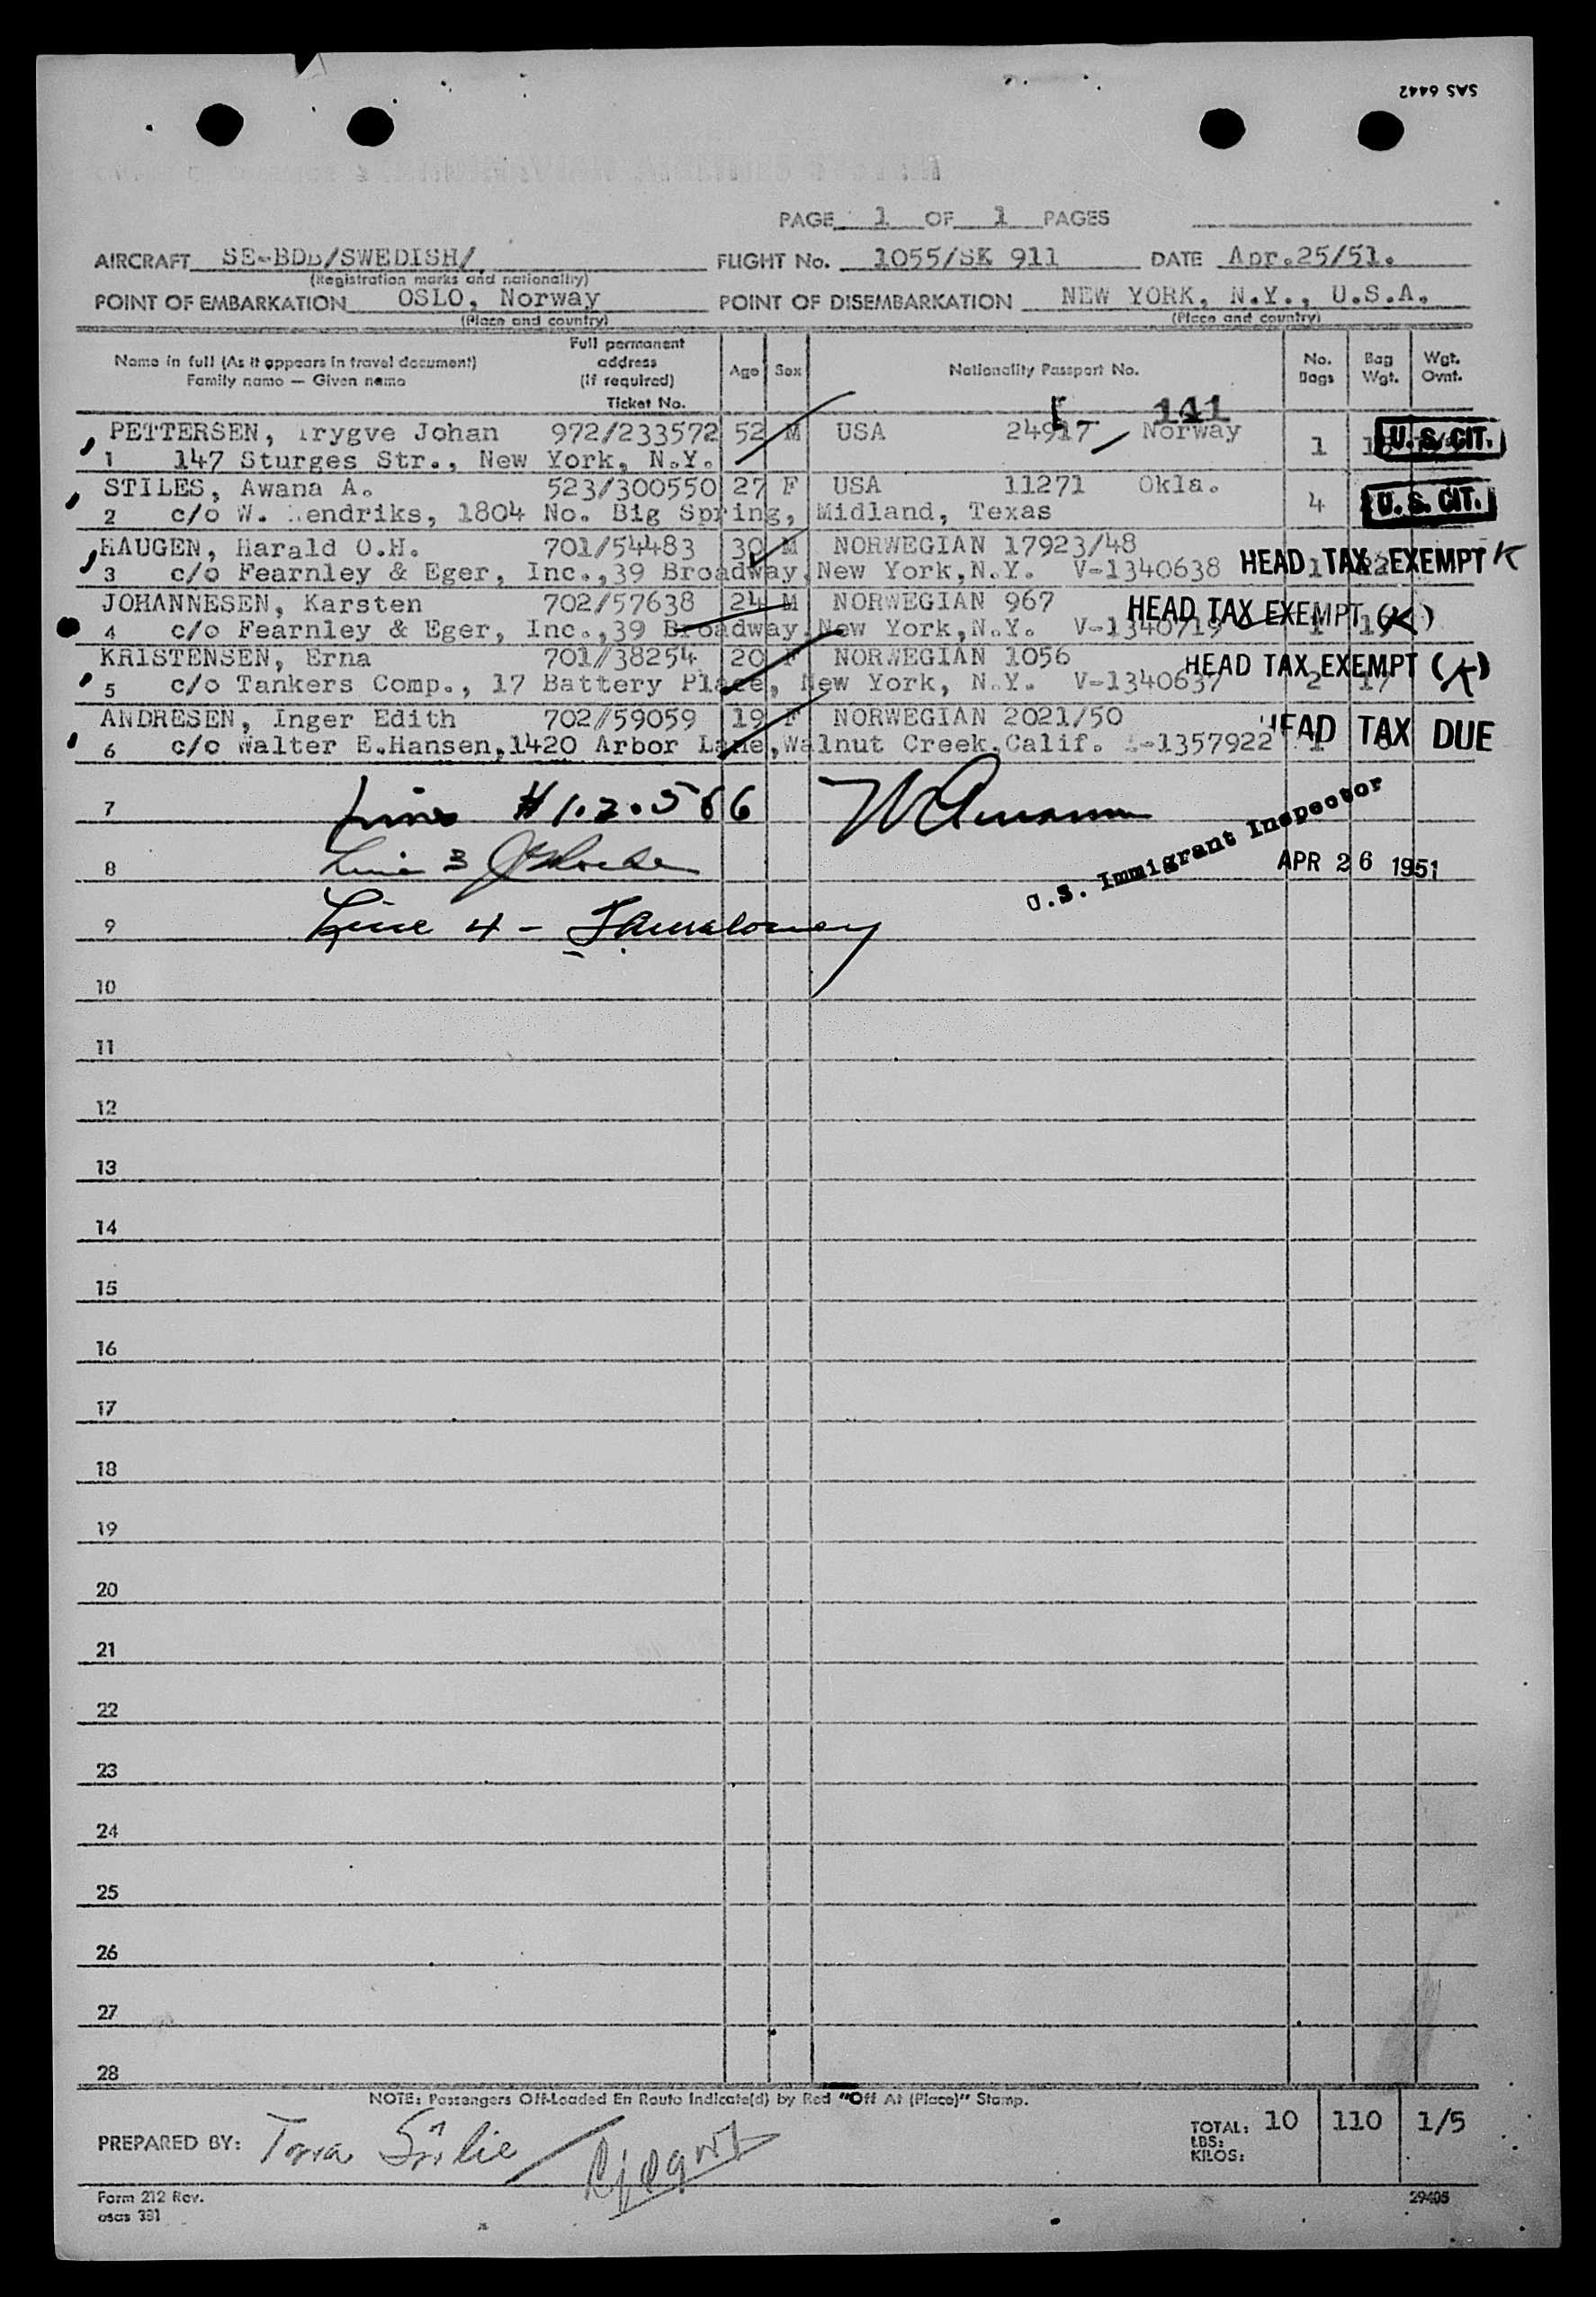 SAS 6442
PAGE 1 OF 1 PAGES
AIRCRAFT SE-BDB/SWEDISH/ FLIGHT No. 1055/SK 911 DATE Apr.25/51.
(Registration marks and nationality)
POINT OF EMBARKATION OSLO, Norway POINT OF DISEMBARKATION NEW YORK, N.Y., U.S.A.
(Place and country) (Place and country)
Name in full (As it appears in travel document) Family name — Given name Full permanent address (If required) Ticket No. Age Sex Nationality Passport No. No. Bags Bag Wgt. Wgt. Ovnt.
141
PETTERSEN, Trygve Johan 972/233572 52 M USA 24917 Norway U.S. CIT.
1 147 Sturges Str., New York, N.Y. 1
STILES, Awana A. 523/300550 27 F USA 11271 Okla. U.S. CIT.
2 c/o W. Hendriks, 1804 No. Big Spring, Midland, Texas 4
HAUGEN, Harald O.H. 701/54483 30 M NORWEGIAN 17923/48
3 c/o Fearnley & Eger, Inc.,39 Broadway,New York,N.Y. V-1340638 1 22 HEAD TAX EXEMPT K
JOHANNESEN, Karsten 702/57638 24 M NORWEGIAN 967 HEAD TAX EXEMPT (K)
4 c/o Fearnley & Eger, Inc.,39 Broadway,New York,N.Y. V-1340719 1
KRISTENSEN, Erna 701/38254 20 F NORWEGIAN 1056 HEAD TAX EXEMPT (K)
5 c/o Tankers Comp., 17 Battery Place, New York, N.Y. V-1340637 2 17
ANDRESEN, Inger Edith 702/59059 19 F NORWEGIAN 2021/50 HEAD TAX DUE
6 c/o Walter E.Hansen,1420 Arbor Lane,Walnut Creek,Calif. -1357922 1
7 Lines #1.2.5 & 6
U.S. Immigrant Inspector
8 Line 3
APR 26 1951
9 Line 4 -
10
11
12
13
14
15
16
17
18
19
20
21
22
23
24
25
26
27
28
NOTE: Passengers Off-Loaded En Route Indicate(d) by Red "Off At (Place)" Stamp.
PREPARED BY: TOTAL: 10 110 1/5
LBS:
KILOS:
Form 212 Rev. 29405
osas 331